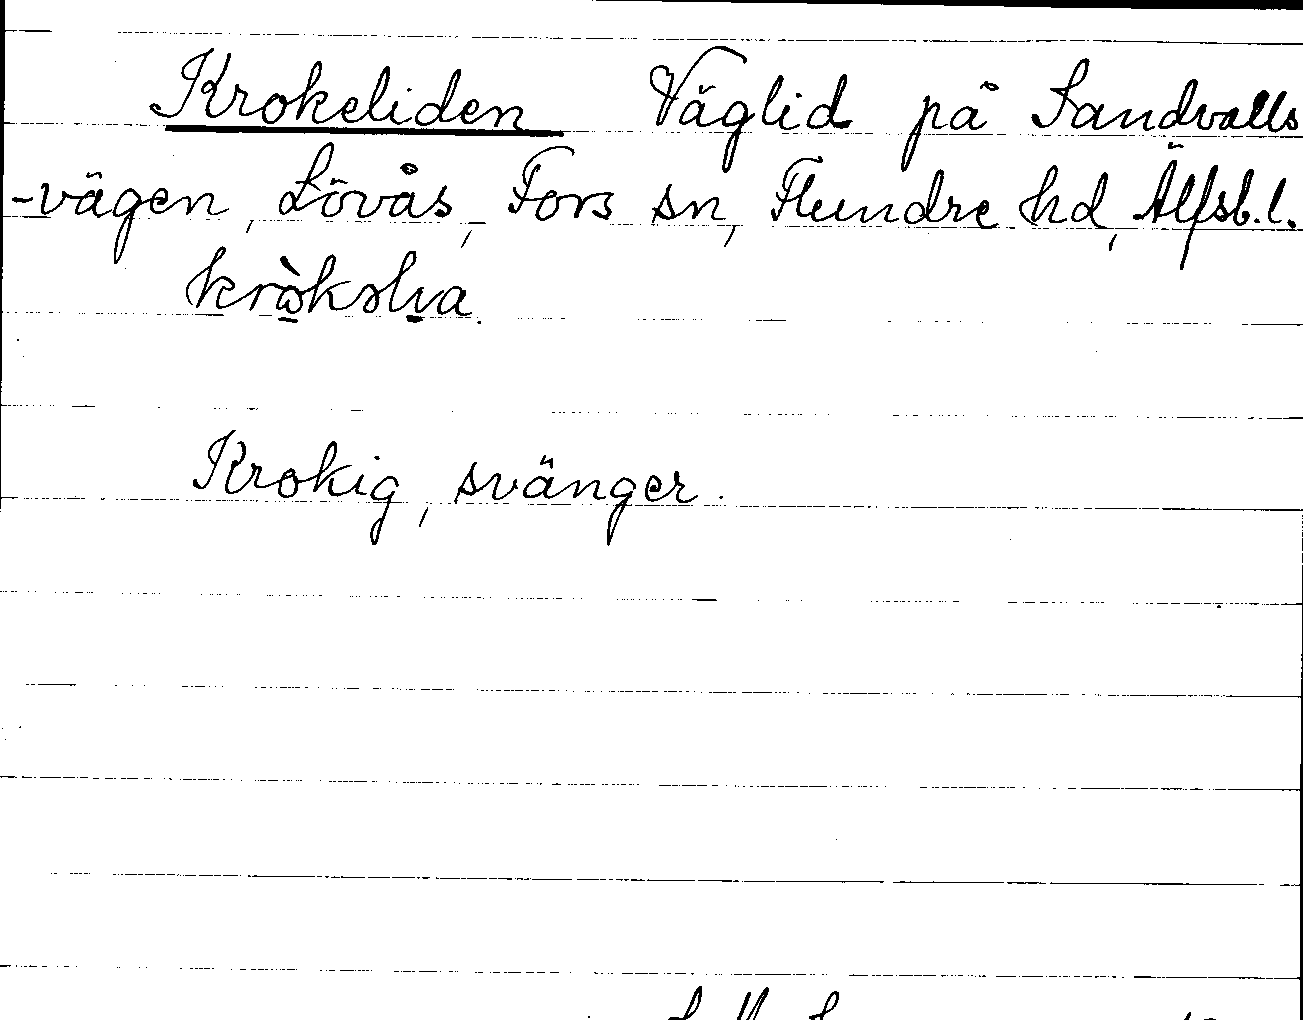 Krokeliden Väglid på Sandvalls
-vägen, Lövås, Fors sn, Flundre hd, Älfsb. l.
Krokig, svänger.